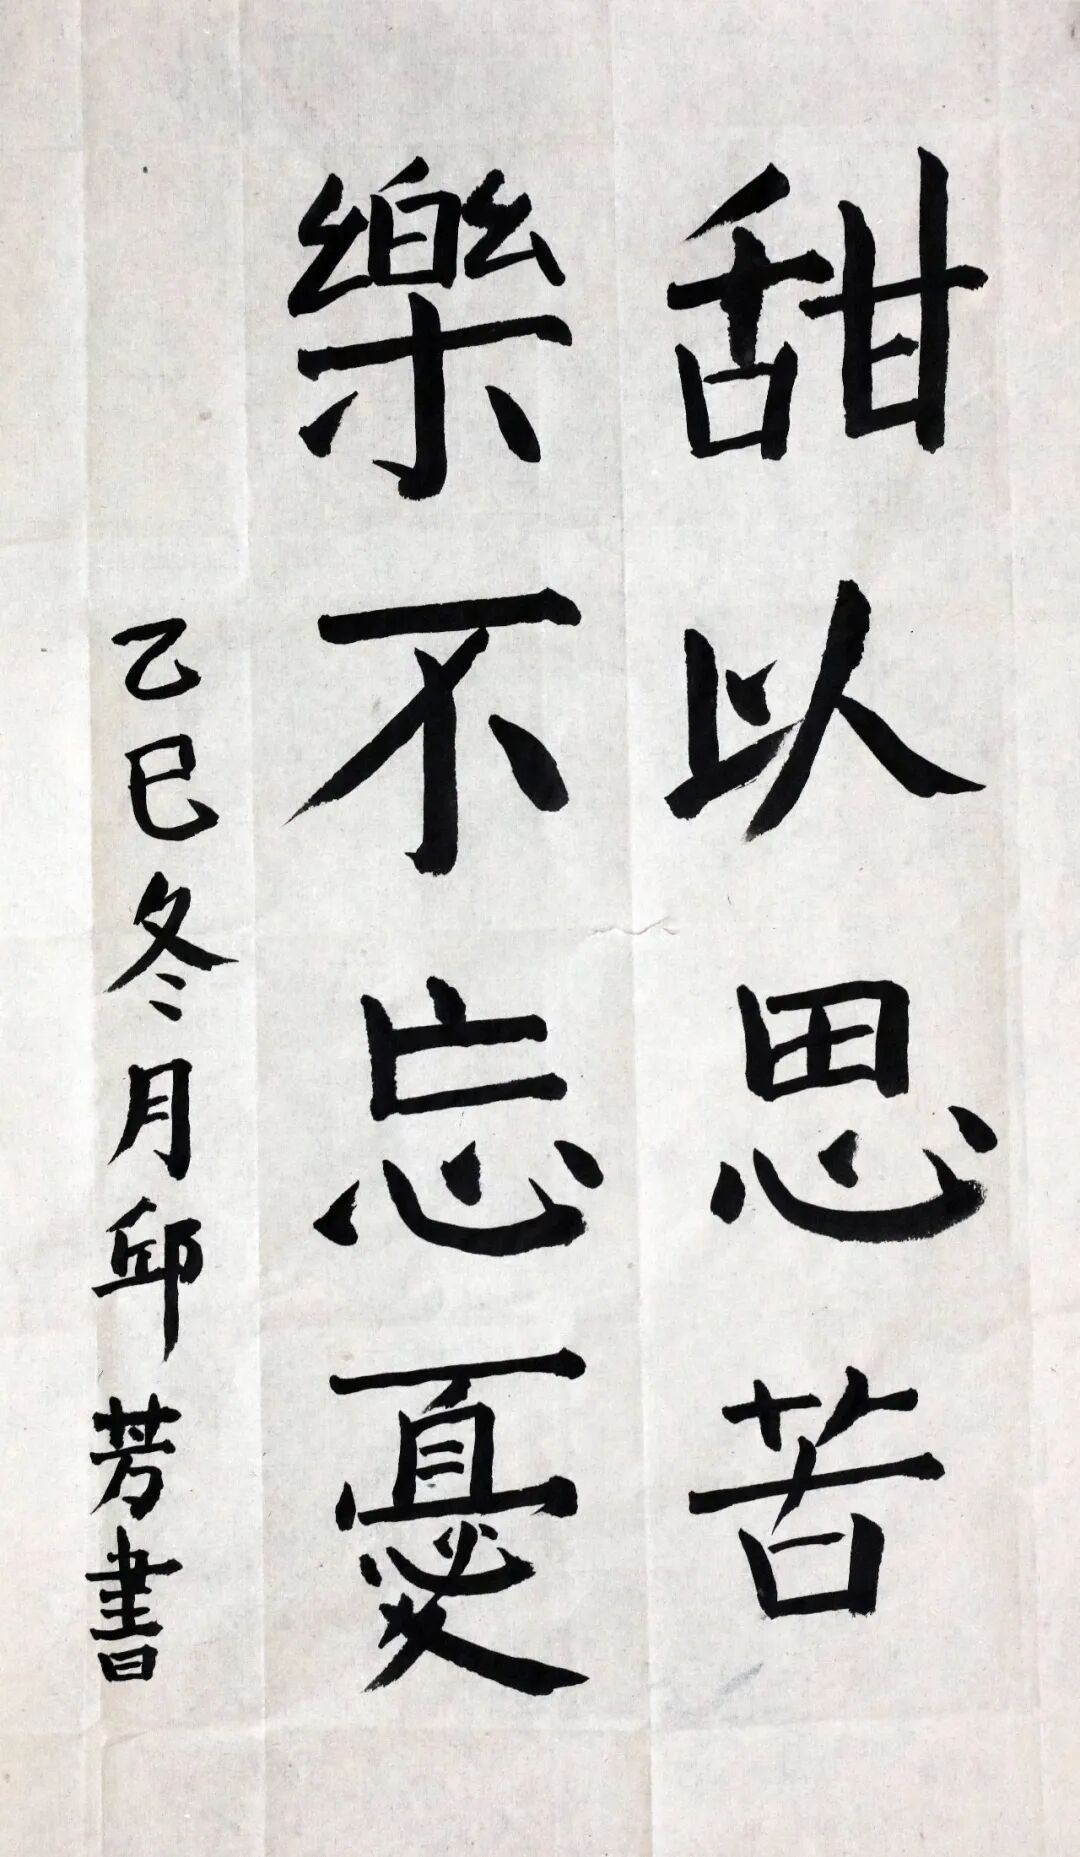 甜以思苦
樂不忘憂
乙巳冬月邱芳書